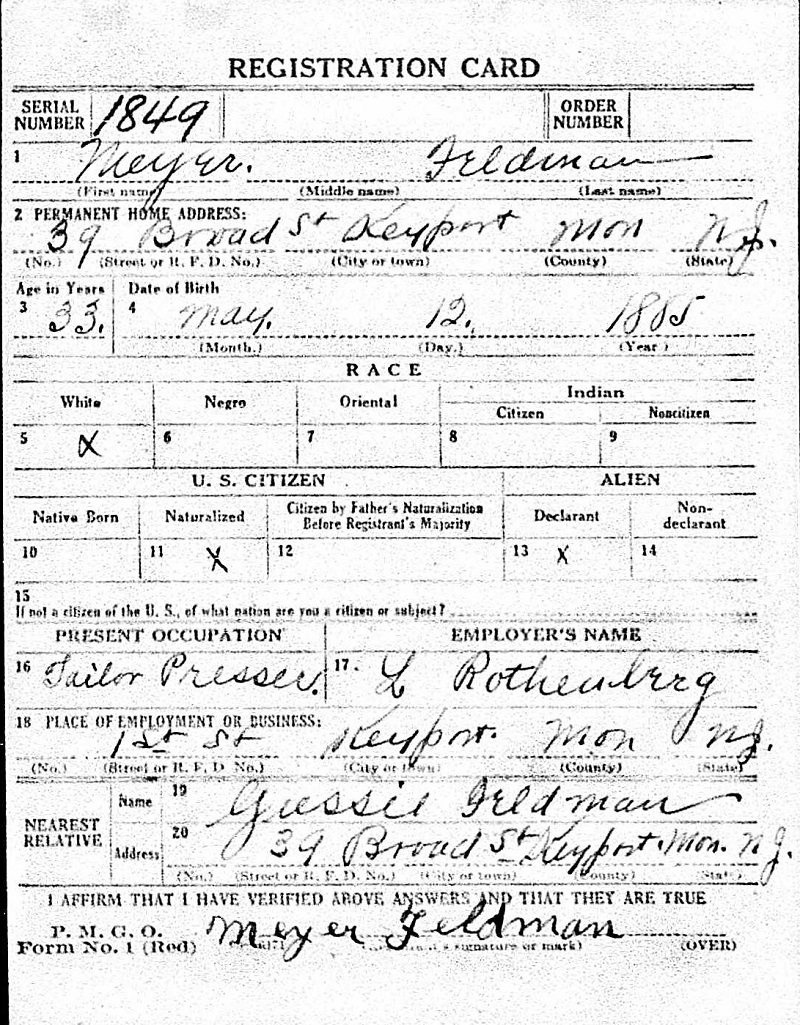 REGISTRATION CARD
SERIAL NUMBER 1849 ORDER NUMBER
1 Meyer. Feldman
(First name) (Middle name) (Last name)
2 PERMANENT HOME ADDRESS:
39 Broad St Keyport Mon N.J.
(No.) (Street or R. F. D. No.) (City or town) (County) (State)
Age in Years Date of Birth
3 33. 4 May. 12. 1885
(Month.) (Day.) (Year)
RACE
White Negro Oriental Indian
Citizen Noncitizen
5 X 6 7 8 9
U. S. CITIZEN ALIEN
Native Born Naturalized Citizen by Father's Naturalization Before Registrant's Majority Declarant Non-declarant
10 11 X 12 13 X 14
15
If not a citizen of the U. S., of what nation are you a citizen or subject?
PRESENT OCCUPATION EMPLOYER'S NAME
16 Tailor Presser. 17. L Rothenberg
18 PLACE OF EMPLOYMENT OR BUSINESS:
1st St Keyport. Mon N.J.
(No.) (Street or R. F. D. No.) (City or town) (County) (State)
NEAREST RELATIVE
Name 19 Gussie Feldman
Address 20 39 Broad St Keyport. Mon. N.J.
(No.) (Street or R. F. D. No.) (City or town) (County) (State)
I AFFIRM THAT I HAVE VERIFIED ABOVE ANSWERS AND THAT THEY ARE TRUE
P. M. G. O.
Form No. 1 (Red) Meyer Feldman
signature or mark) (OVER)